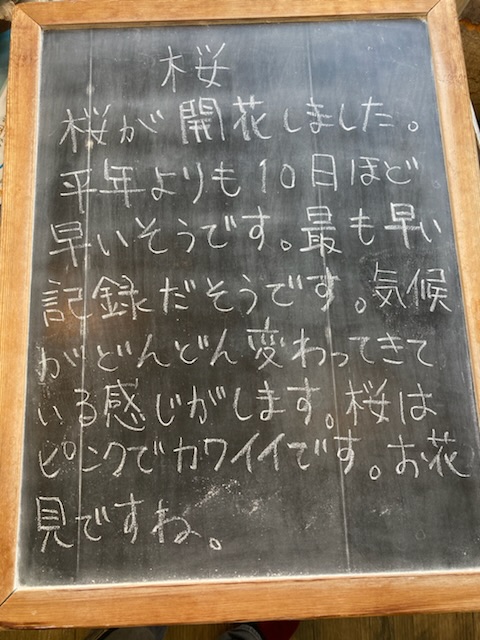 桜
桜が開花しました。
平年よりも10日ほど
早いそうです。最も早い
記録だそうです。気候
がどんどん変わってきて
いる感じがします。桜は
ピンクでカワイイです。お花
見ですね。